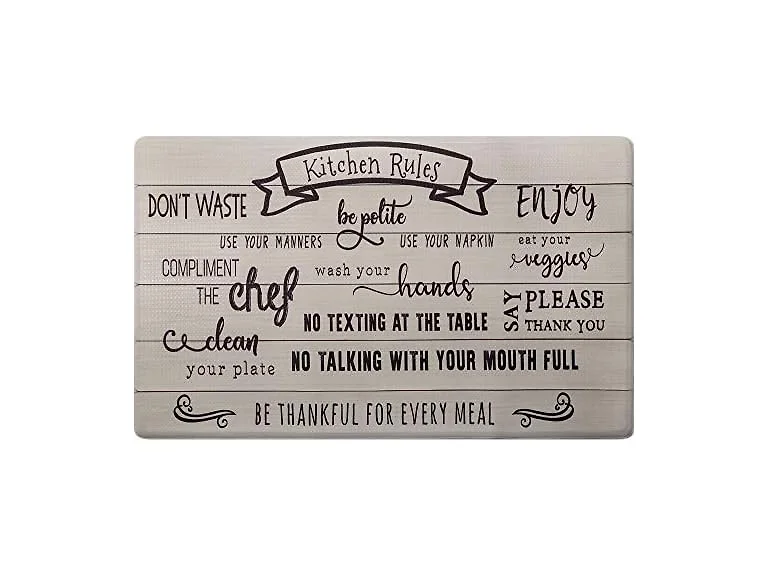 Kitchen Rules
DON'T WASTE
be polite
ENJOY
USE YOUR MANNERS
USE YOUR NAPKIN
eat your
veggies
COMPLIMENT
THE chef
wash your
hands
SAY
PLEASE
THANK YOU
NO TEXTING AT THE TABLE
clean
your plate
NO TALKING WITH YOUR MOUTH FULL
BE THANKFUL FOR EVERY MEAL